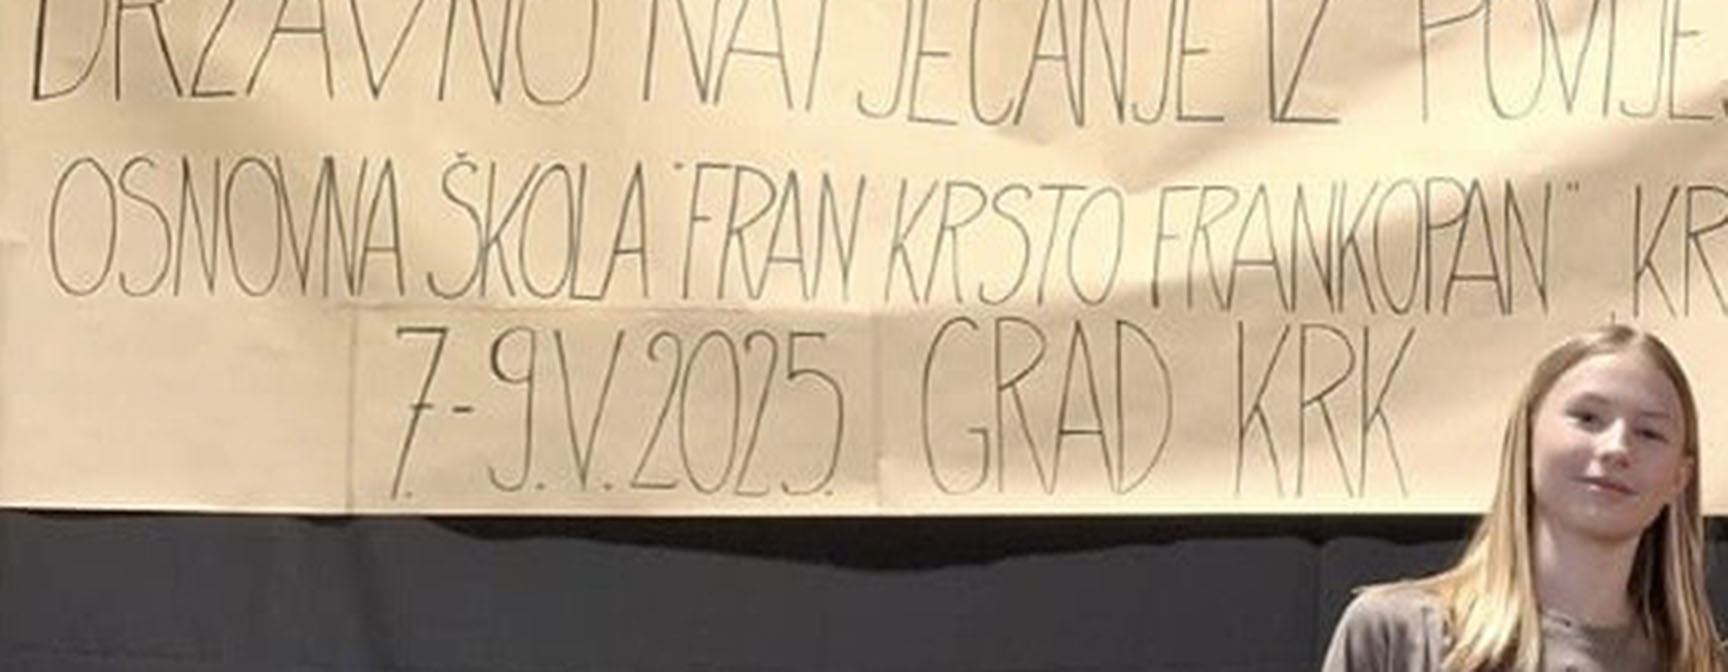 DRŽAVNO NATJECANJE IZ POVIJES
OSNOVNA ŠKOLA "FRAN KRSTO FRANKOPAN" KR
7.-9.V.2025. GRAD KRK